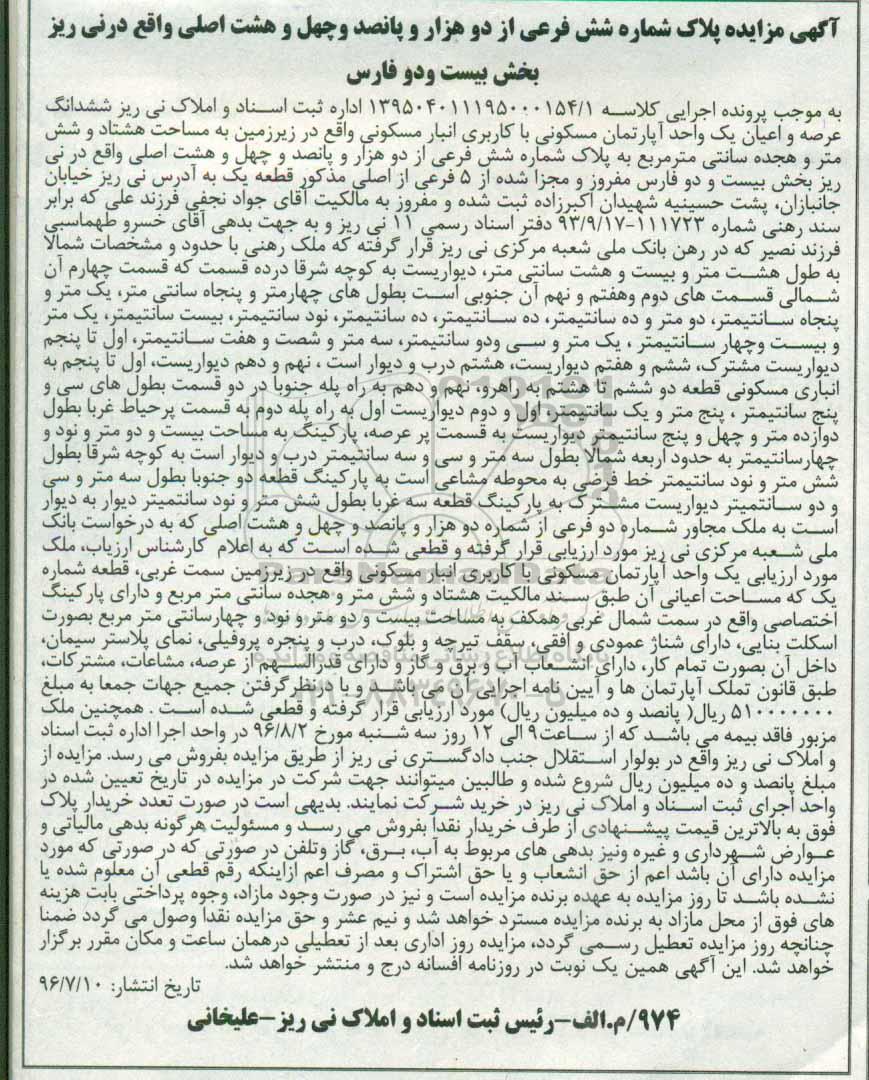 آگهی مزایده پلاک شماره شش فرعی از دو هزار و پانصد وچهل و هشت اصلی واقع درنی ریز
بخش بیست ودو فارس
به موجب پرونده اجرایی کلاسه ۱۳۹۵۰۴۰۱۱۱۹۵۰۰۰۱۵۴/۱ اداره ثبت اسناد و املاک نی ریز ششدانگ
عرصه و اعیان یک واحد آپارتمان مسکونی با کاربری انبار مسکونی واقع در زیرزمین به مساحت هشتاد و شش
متر و هجده سانتی مترمربع به پلاک شماره شش فرعی از دو هزار و پانصد و چهل و هشت اصلی واقع در نی
ریز بخش بیست و دو فارس مفروز و مجزا شده از ۵ فرعی از اصلی مذکور قطعه یک به آدرس نی ریز خیابان
جانبازان، پشت حسینیه شهیدان اکبرزاده ثبت شده و مفروز به مالکیت آقای جواد نجفی فرزند علی که برابر
سند رهنی شماره ۱۱۱۷۲۳-۹۳/۹/۱۷ دفتر اسناد رسمی ۱۱ نی ریز و به جهت بدهی آقای خسرو طهماسبی
فرزند نصیر که در رهن بانک ملی شعبه مرکزی نی ریز قرار گرفته که ملک رهنی با حدود و مشخصات شمالا
به طول هشت متر و بیست و هشت سانتی متر، دیواریست به کوچه شرقا درده قسمت که قسمت چهارم آن
شمالی قسمت های دوم وهفتم و نهم آن جنوبی است بطول های چهارمتر و پنجاه سانتی متر، یک متر و
پنجاه سانتیمتر، دو متر و ده سانتیمتر، ده سانتیمتر، ده سانتیمتر، نود سانتیمتر، بیست سانتیمتر، یک متر
و بیست وچهار سانتیمتر ، یک متر و سی ودو سانتیمتر، سه متر و شصت و هفت سانتیمتر، اول تا پنجم
دیواریست مشترک، ششم و هفتم دیواریست، هشتم درب و دیوار است ، نهم و دهم دیواریست، اول تا پنجم به
انباری مسکونی قطعه دو ششم تا هشتم به راهرو، نهم و دهم به راه پله جنوبا در دو قسمت بطول های سی و
پنج سانتیمتر ، پنج متر و یک سانتیمتر، اول و دوم دیواریست اول به راه پله دوم به قسمت پرحیاط غربا بطول
دوازده متر و چهل و پنج سانتیمتر دیواریست به قسمت پر عرصه، پارکینگ به مساحت بیست و دو متر و نود و
چهارسانتیمتر به حدود اربعه شمالا بطول سه متر و سی و سه سانتیمتر درب و دیوار است به کوچه شرقا بطول
شش متر و نود سانتیمتر خط فرضی به محوطه مشاعی است به پارکینگ قطعه دو جنوبا بطول سه متر و سی
و دو سانتمیتر دیواریست مشترک به پارکینگ قطعه سه غربا بطول شش متر و نود سانتمیتر دیوار به دیوار
است به ملک مجاور شماره دو فرعی از شماره دو هزار و پانصد و چهل و هشت اصلی که به درخواست بانک
ملی شعبه مرکزی نی ریز مورد ارزیابی قرار گرفته و قطعی شده است که به اعلام کارشناس ارزیاب، ملک
مورد ارزیابی یک واحد آپارتمان مسکونی با کاربری انبار مسکونی واقع در زیرزمین سمت غربی، قطعه شماره
یک که مساحت اعیانی آن طبق سند مالکیت هشتاد و شش متر و هجده سانتی متر مربع و دارای پارکینگ
اختصاصی واقع در سمت شمال غربی همکف به مساحت بیست و دو متر و نود و چهارسانتی متر مربع بصورت
اسکلت بنایی، دارای شناژ عمودی و افقی، سقف تیرچه و بلوک، درب و پنجره پروفیلی، نمای پلاستر سیمان،
داخل آن بصورت تمام کار، دارای انشعاب آب و برق و گاز و دارای قدرالسهم از عرصه، مشاعات، مشترکات،
طبق قانون تملک آپارتمان ها و آیین نامه اجرایی آن می باشد و با درنظرگرفتن جمیع جهات جمعا به مبلغ
۵۱۰۰۰۰۰۰۰ ریال( پانصد و ده میلیون ریال) مورد ارزیابی قرار گرفته و قطعی شده است . همچنین ملک
مزبور فاقد بیمه می باشد که از ساعت۹ الی ۱۲ روز سه شنبه مورخ ۹۶/۸/۲ در واحد اجرا اداره ثبت اسناد
و املاک نی ریز واقع در بولوار استقلال جنب دادگستری نی ریز از طریق مزایده بفروش می رسد. مزایده از
مبلغ پانصد و ده میلیون ریال شروع شده و طالبین میتوانند جهت شرکت در مزایده در تاریخ تعیین شده در
واحد اجرای ثبت اسناد و املاک نی ریز در خرید شرکت نمایند. بدیهی است در صورت تعدد خریدار پلاک
فوق به بالاترین قیمت پیشنهادی از طرف خریدار نقدا بفروش می رسد و مسئولیت هرگونه بدهی مالیاتی و
عوارض شهرداری و غیره ونیز بدهی های مربوط به آب، برق، گاز وتلفن در صورتی که در صورتی که مورد
مزایده دارای آن باشد اعم از حق انشعاب و یا حق اشتراک و مصرف اعم ازاینکه رقم قطعی آن معلوم شده یا
نشده باشد تا روز مزایده به عهده برنده مزایده است و نیز در صورت وجود مازاد، وجوه پرداختی بابت هزینه
های فوق از محل مازاد به برنده مزایده مسترد خواهد شد و نیم عشر و حق مزایده نقدا وصول می گردد ضمنا
چنانچه روز مزایده تعطیل رسمی گردد، مزایده روز اداری بعد از تعطیلی درهمان ساعت و مکان مقرر برگزار
خواهد شد. این آگهی همین یک نوبت در روزنامه افسانه درج و منتشر خواهد شد.
تاریخ انتشار: ۹۶/۷/۱۰
۹۷۴/م.الف-رئیس ثبت اسناد و املاک نی ریز-علیخانی